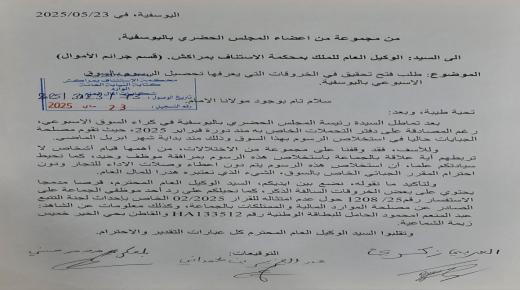 اليوسفية، في 2025/05/23
من مجموعة من اعضاء المجلس الحضري باليوسفية.
الى السيد: الوكيل العام للملك بمحكمة الاستئناف بمراكش. (قسم جرائم الأموال)
الموضوع: طلب فتح تحقيق في الخروقات التي يعرفها تحصيل الرسوم بالسوق
الأسبوعي باليوسفية.
محكمة الاستئناف بمراكش
كتابة النيابة العامة
سلام تام بوجود مولانا الامام
23 ماي 2025
تحية طيبة، وبعد:
بعد تماطل السيدة رئيسة المجلس الحضري باليوسفية في كراء السوق الأسبوعي،
رغم المصادقة على دفتر التحملات الخاص به منذ دورة فبراير 2025، حيث تقوم مصلحة
الجبايات حاليا في استخلاص الرسوم بهذا السوق وذلك منذ بداية شهر ابريل الماضي.
وللأسف، فقد وقفنا على مجموعة من الاختلالات، من أهمها قيام أشخاص لا
تربطهم أية علاقة بالجماعة باستخلاص هذه الرسوم بمرافقة موظف وحيد، كما نحيط
سيادتكم علما، أن استخلاص هذه الرسوم يتم دون إعطاء وصلات الاداء للتجار ودون
احترام المقرر الجبائي الخاص بالسوق، الشيء الذي نعتبره هدرا للمال العام.
ولتأكيد ما نقوله، نضع بين ايديكم، السيد الوكيل العام المحترم، قرصا مدمجا
يحتوي على بعض الخروقات السالفة الذكر، كما نحيلكم على رد أحد موظفي الجماعة على
الاستفسار رقم 25/ 1208 حول عدم امتثاله للقرار 02/2025 الخاص بإحداث لجنة التتبع
الصادر عن مصلحة الموارد المالية والممتلكات بالجماعة، وكذلك معلومات عن الشاهد:
عبد المنعم امحمود الحامل للبطاقة الوطنية رقم HA133512 والقاطن بحي الخير خميس
زيمة الشماعية.
وتقبلوا السيد الوكيل العام المحترم كل عبارات التقدير والاحترام.
التوقيعات: